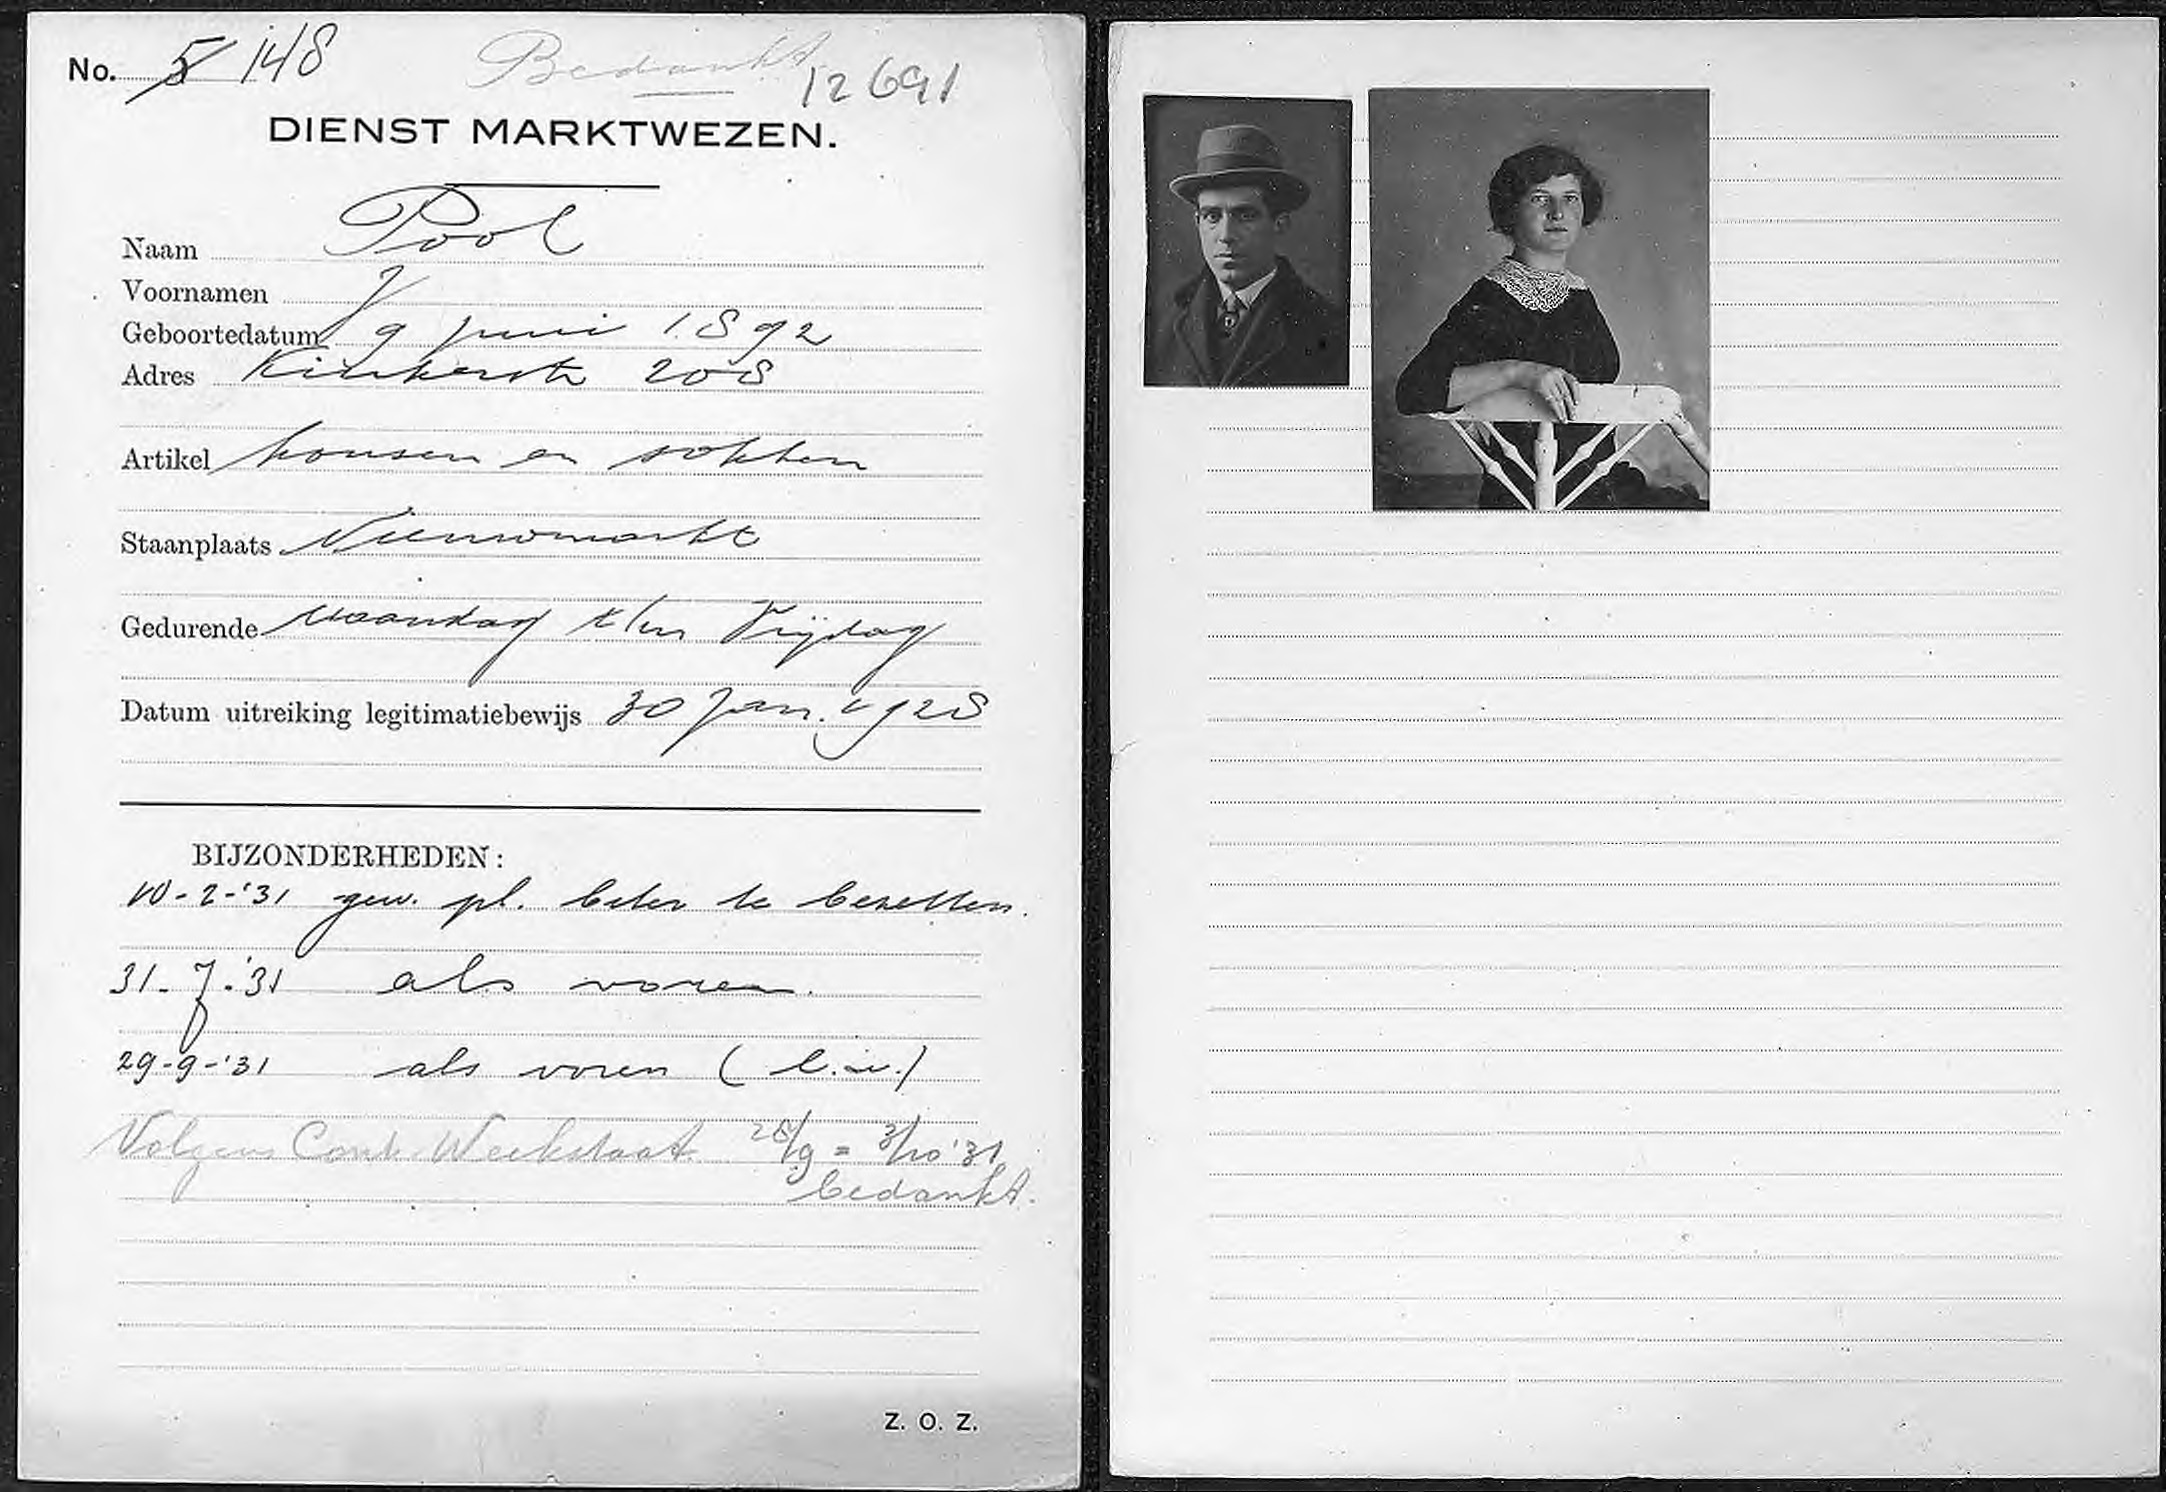 No. 5 148 Bedankt
12691
DIENST MARKTWEZEN.
Naam Pool
Voornamen J
Geboortedatum 9 juni 1892
Adres Kinkerstr 208
Artikel kousen en sokken
Staanplaats Nieuwmarkt
Gedurende Maandag t/m Vrijdag
Datum uitreiking legitimatiebewijs 30 Jan. 1928
BIJZONDERHEDEN:
10-2-'31 gew. pl. beter te bezetten.
31-7-'31 als voren.
29-9-'31 als voren
Volgens Contr. Weekstaat 28/9 = 3/10 '31
bedankt.
Z. O. Z.